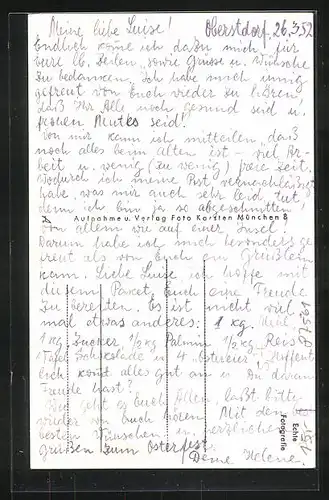 Meine liebe Luise! Oberstdorf, 26.3.52
Endlich kome ich dazu mich für
eure lb. Zeilen sowie Grüsse u. Wünsche
zu bedanken. Ich habe mich innig
gefreut von Euch wieder zu hören,
daß Ihr Alle noch gesund seid u.
frohen Mutes seid!
Von mir kann ich mitteilen daß
noch alles beim Alten ist – viel Ar-
beit u. wenig (zu wenig) freie Zeit.
Wodurch ich meine Post vernachlässigt
habe, was mir auch sehr leid tut,
denn ich bin ja so abgeschnitten
Aufnahme u. Verlag Foto Karsten München 8
von allem wie auf einer Insel!
Darum habe ich mich besonders ge-
freut als von Euch ein Grüßlein
kam. Liebe Luise ich hoffe mit
diesem Paket Euch eine Freude
zu bereiten. Es ist nicht viel
mal etwas anderes: 1 kg Mehl
1 kg Zucker 1/2 kg Palmin 1/2 kg Reis
Tafel Schokolade u 4 Hoffent-
lich komt alles gut an u. Du daran
Freude hast?
Wie geht es Euch Allen, laßt bitte
wieder von Euch hören. Mit den
besten Wünschen u. herzlichen
grüßen zum Osterfest
Deine Helene.
Echte
Fotografie